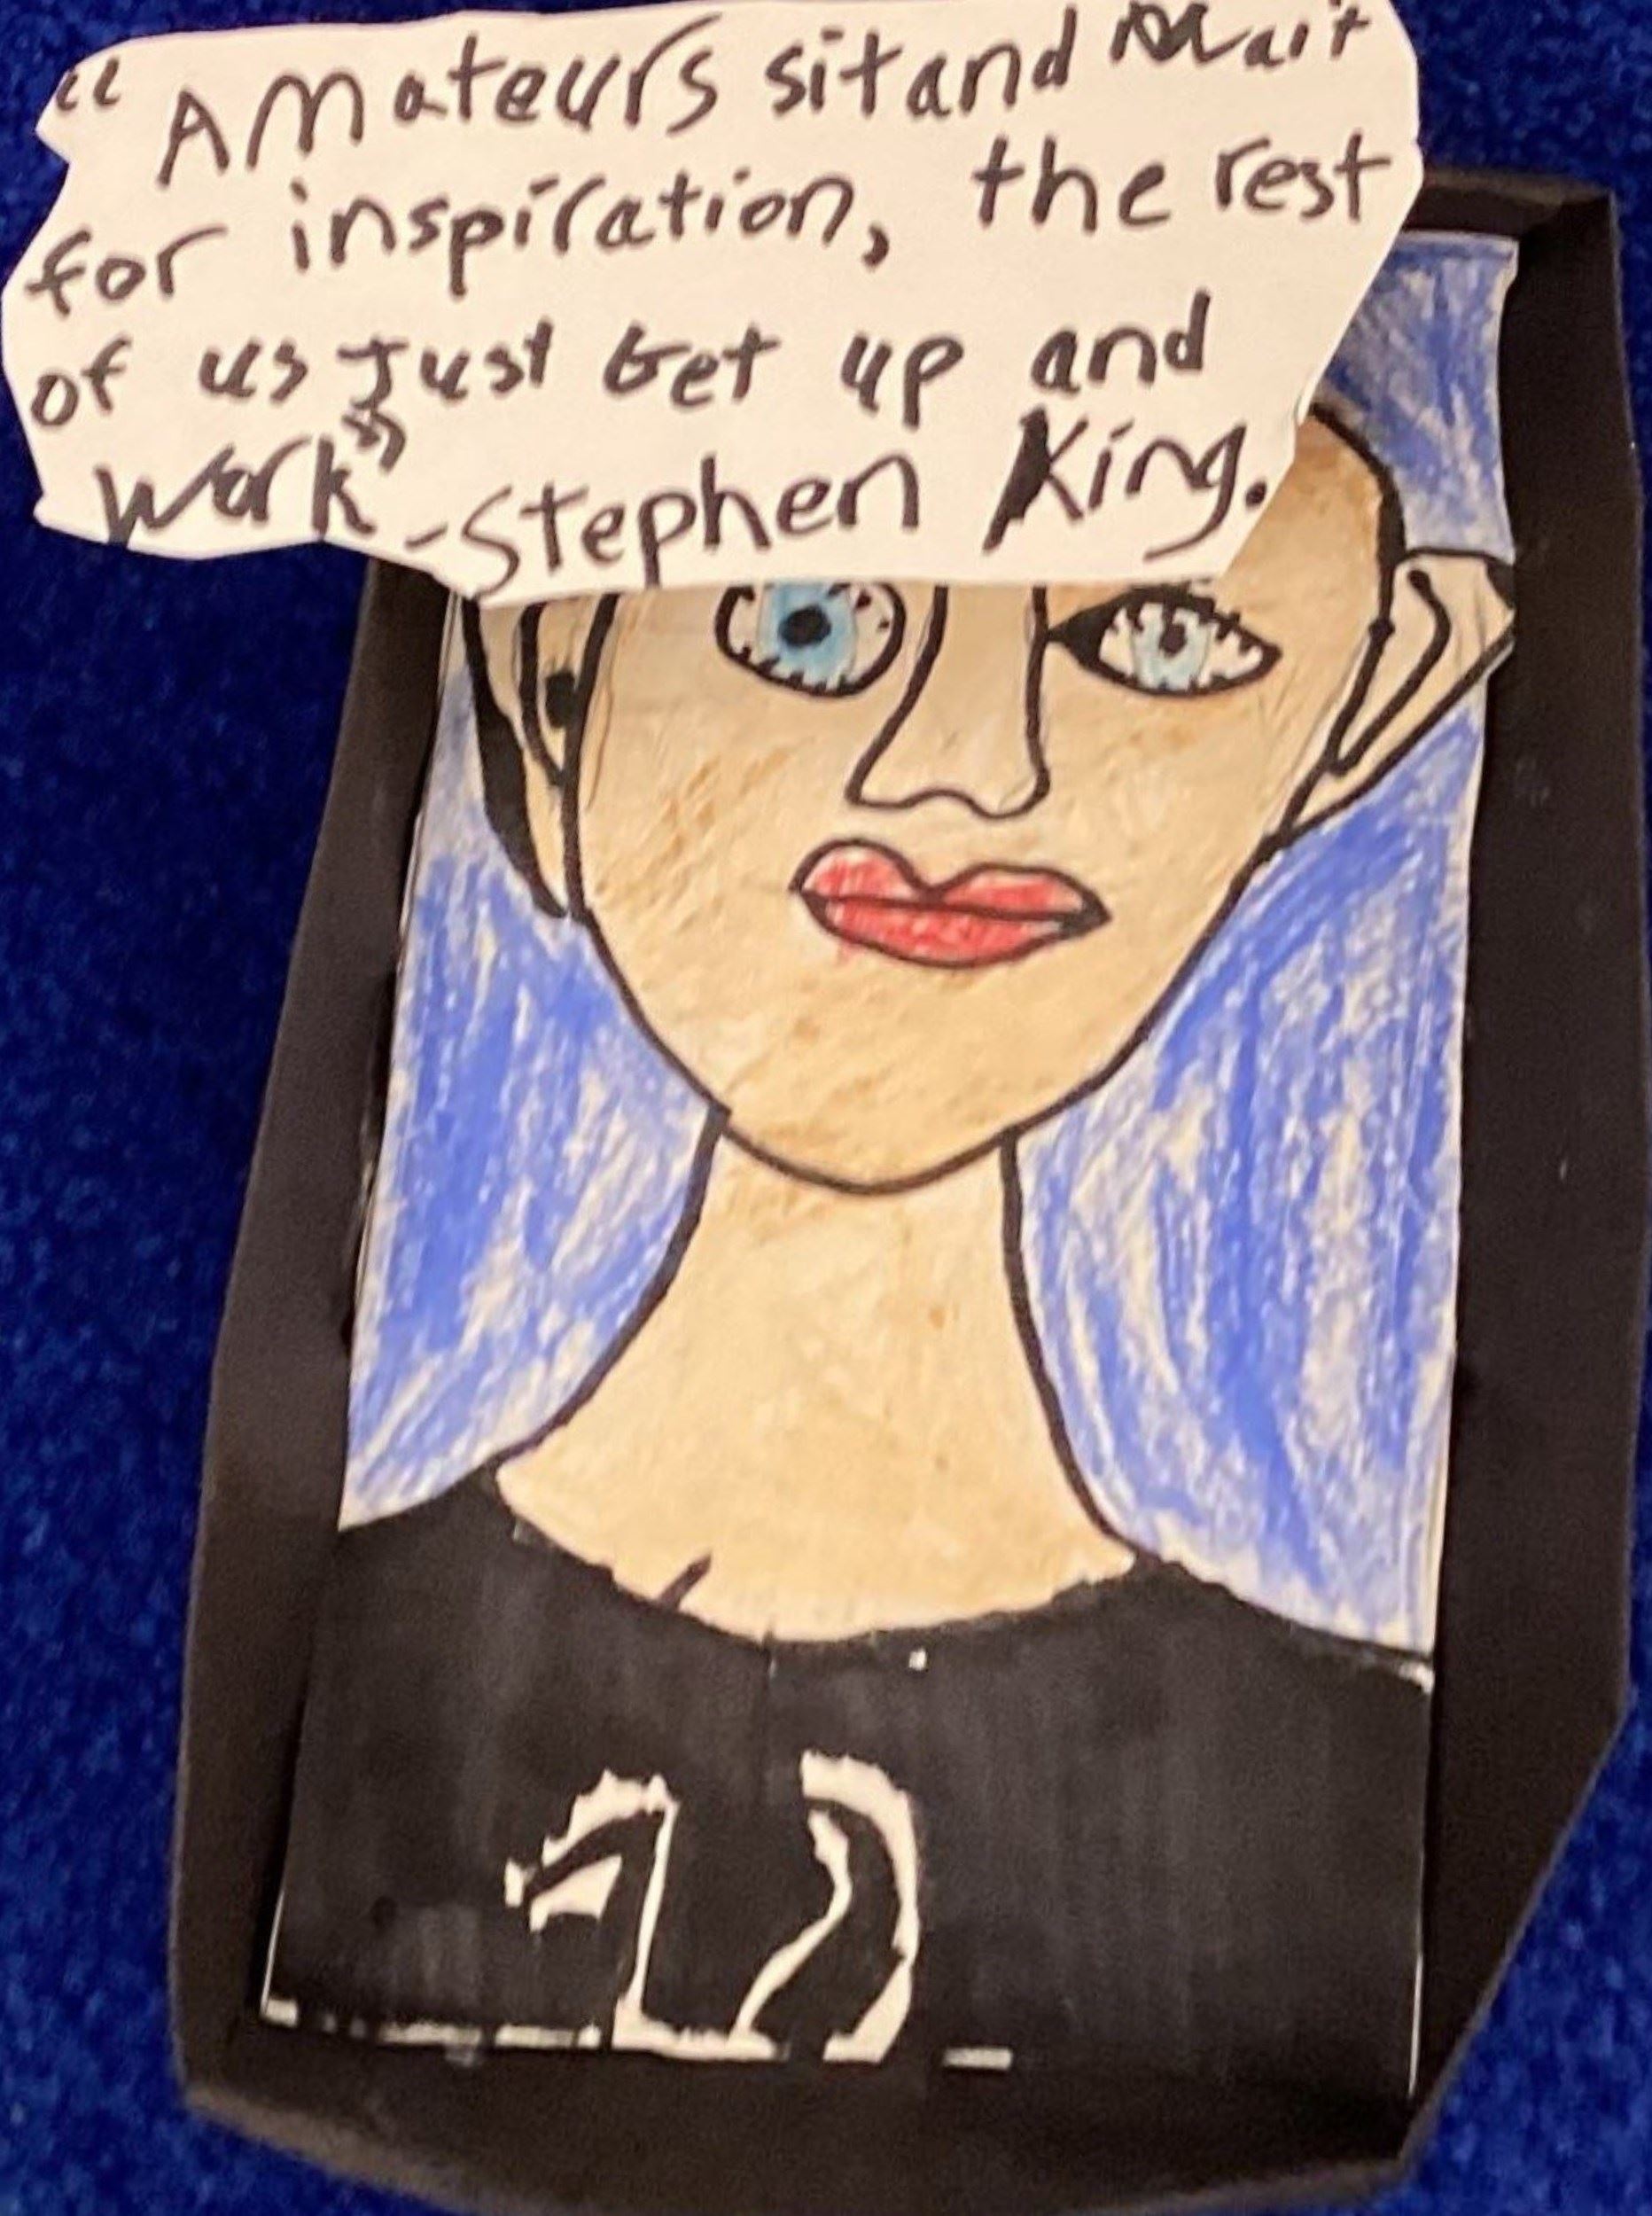 "Amateurs sit and wait
for inspiration, the rest
of us Just Get up and
Work" -Stephen King.